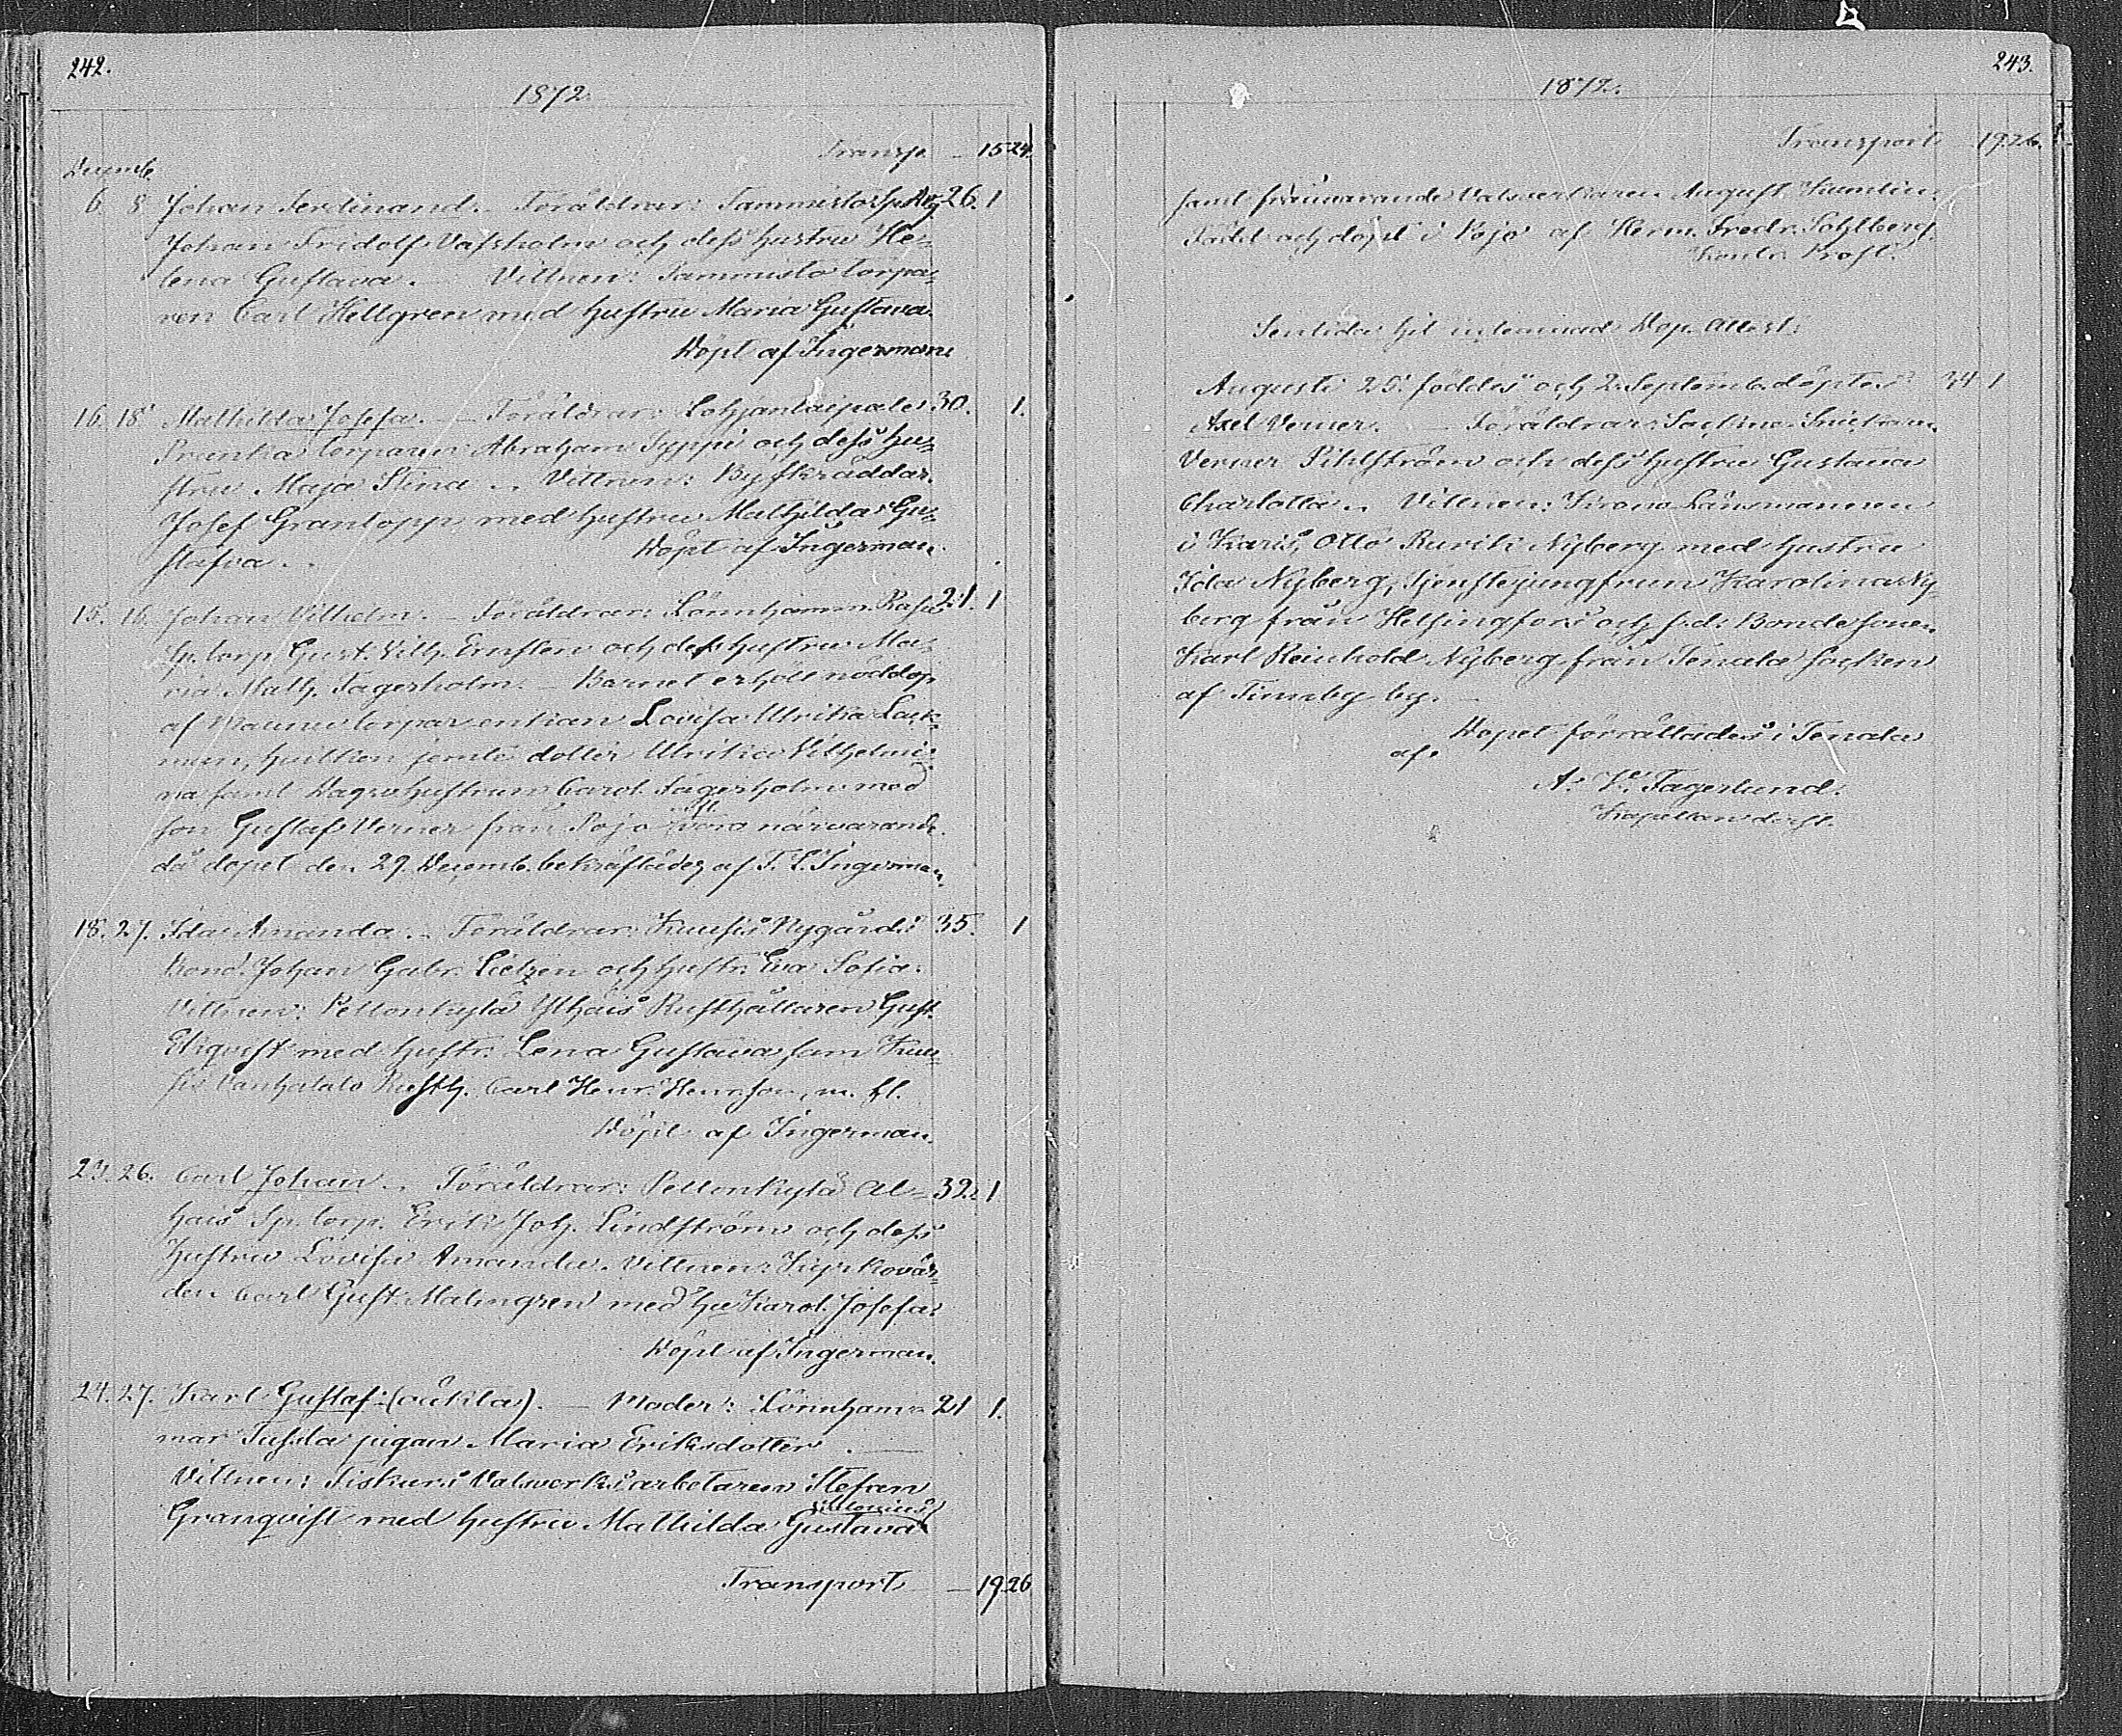 242.
1872.
Transp. — 15 24.
Decemb.
6. 8 Johan Ferdinand. Föräldrar: Tammisto Sp. 26. 1
Johan Fridolf Vafsholm och dess hustru He-
lena Gustava. — Vittnen: Tammisto torpa-
ren Carl Hellgren med hustru Maria Gustava.
Döpt af Ingerman
16. 18. Mathilda Josefa. — Föräldrar: Lohjantaipale 30. 1.
Prentta torparen Abraham Syppi och dess hu-
stru Maja Stina. Vittnen: Byskräddar.
Josef Grantopp med hustru Mathilda Gu-
stafva. Döpt af Ingerman.
15. 16. Johan Vilhelm. — Föräldrar: Lönnhamm. 21. 1
Sp. torp. Gust. Vilh. Ernsten och dess hustru Ma-
ria Math. Fagerholm. — Barnet erhöll nöddop
af Maunu torpar enkan Lovisa Ulrika Lack-
man, hvilken jemte dotter Ulrika Vilhelmi-
na samt hustrun Carol. Fagerholm med
son Gustaf Verner från Pojo voro närvarande
då dopet den 29. Decemb. bekräftades af F. L. Ingerman.
18. 27. Ida Amanda. — Föräldrar: Kuusis Nygårds 35. 1
Bond. Johan Gabr. och hustr. Eva Sofia.
Vittnen: Pellonkylä Ylhäis Rusthållaren Gust.
Elgqvist med hustr. Lena Gustava sam Kuu-
sis Vanhatalo Rusth. Carl Henr. Henrson, m. fl.
Döpt af Ingerman.
23. 26. Carl Johan. Föräldrar: Pellonkylä Al- 32. 1
häis Sp. torp. Erik Joh. Lindström och dess
hustru Lovisa Amanda. Vittnen: Kyrkovär-
den Carl Gust. Malmgren med hu Karol. Josefa.
Döpt af Ingerman.
24. 27. Karl Gustaf (oäkta). — Moder: Lönnham- 21 1.
mar pigan Maria Eriksdotter. —
Vittnen: Fiskars Valsverksarbetaren Stefan
Granqvist med hustru Mathilda Gustava
Transport — 19 26
243.
1872.
Transport 19 26.
samt frånvarande Valsverkaren August Kumlin.
Född och döpt i Pojo af Herm. Fredr. Sohlberg.
Kontr. Prost.
Sentida hit inlemnad Dop. Attest:
Augusti 25. föddes och 2. Septemb. döptes 34 1
Axel Verner. — Föräldrar: Snickaren
Verner Pihlström och dess hustru Gustava
Charlotta. Vittnen: Krono Länsmannen
i Karis, Otto Rurik Nyberg med hustru
Ida Nyberg, Tjenstejungfrun Karolina Ny-
berg från Helsingfors och f. d. Bondesonen
Karl Reinhold Nyberg från Tenala socken
af by.
Dopet förrättades i Tenala
af
A. V. Fagerlund.
Kapellan derst.